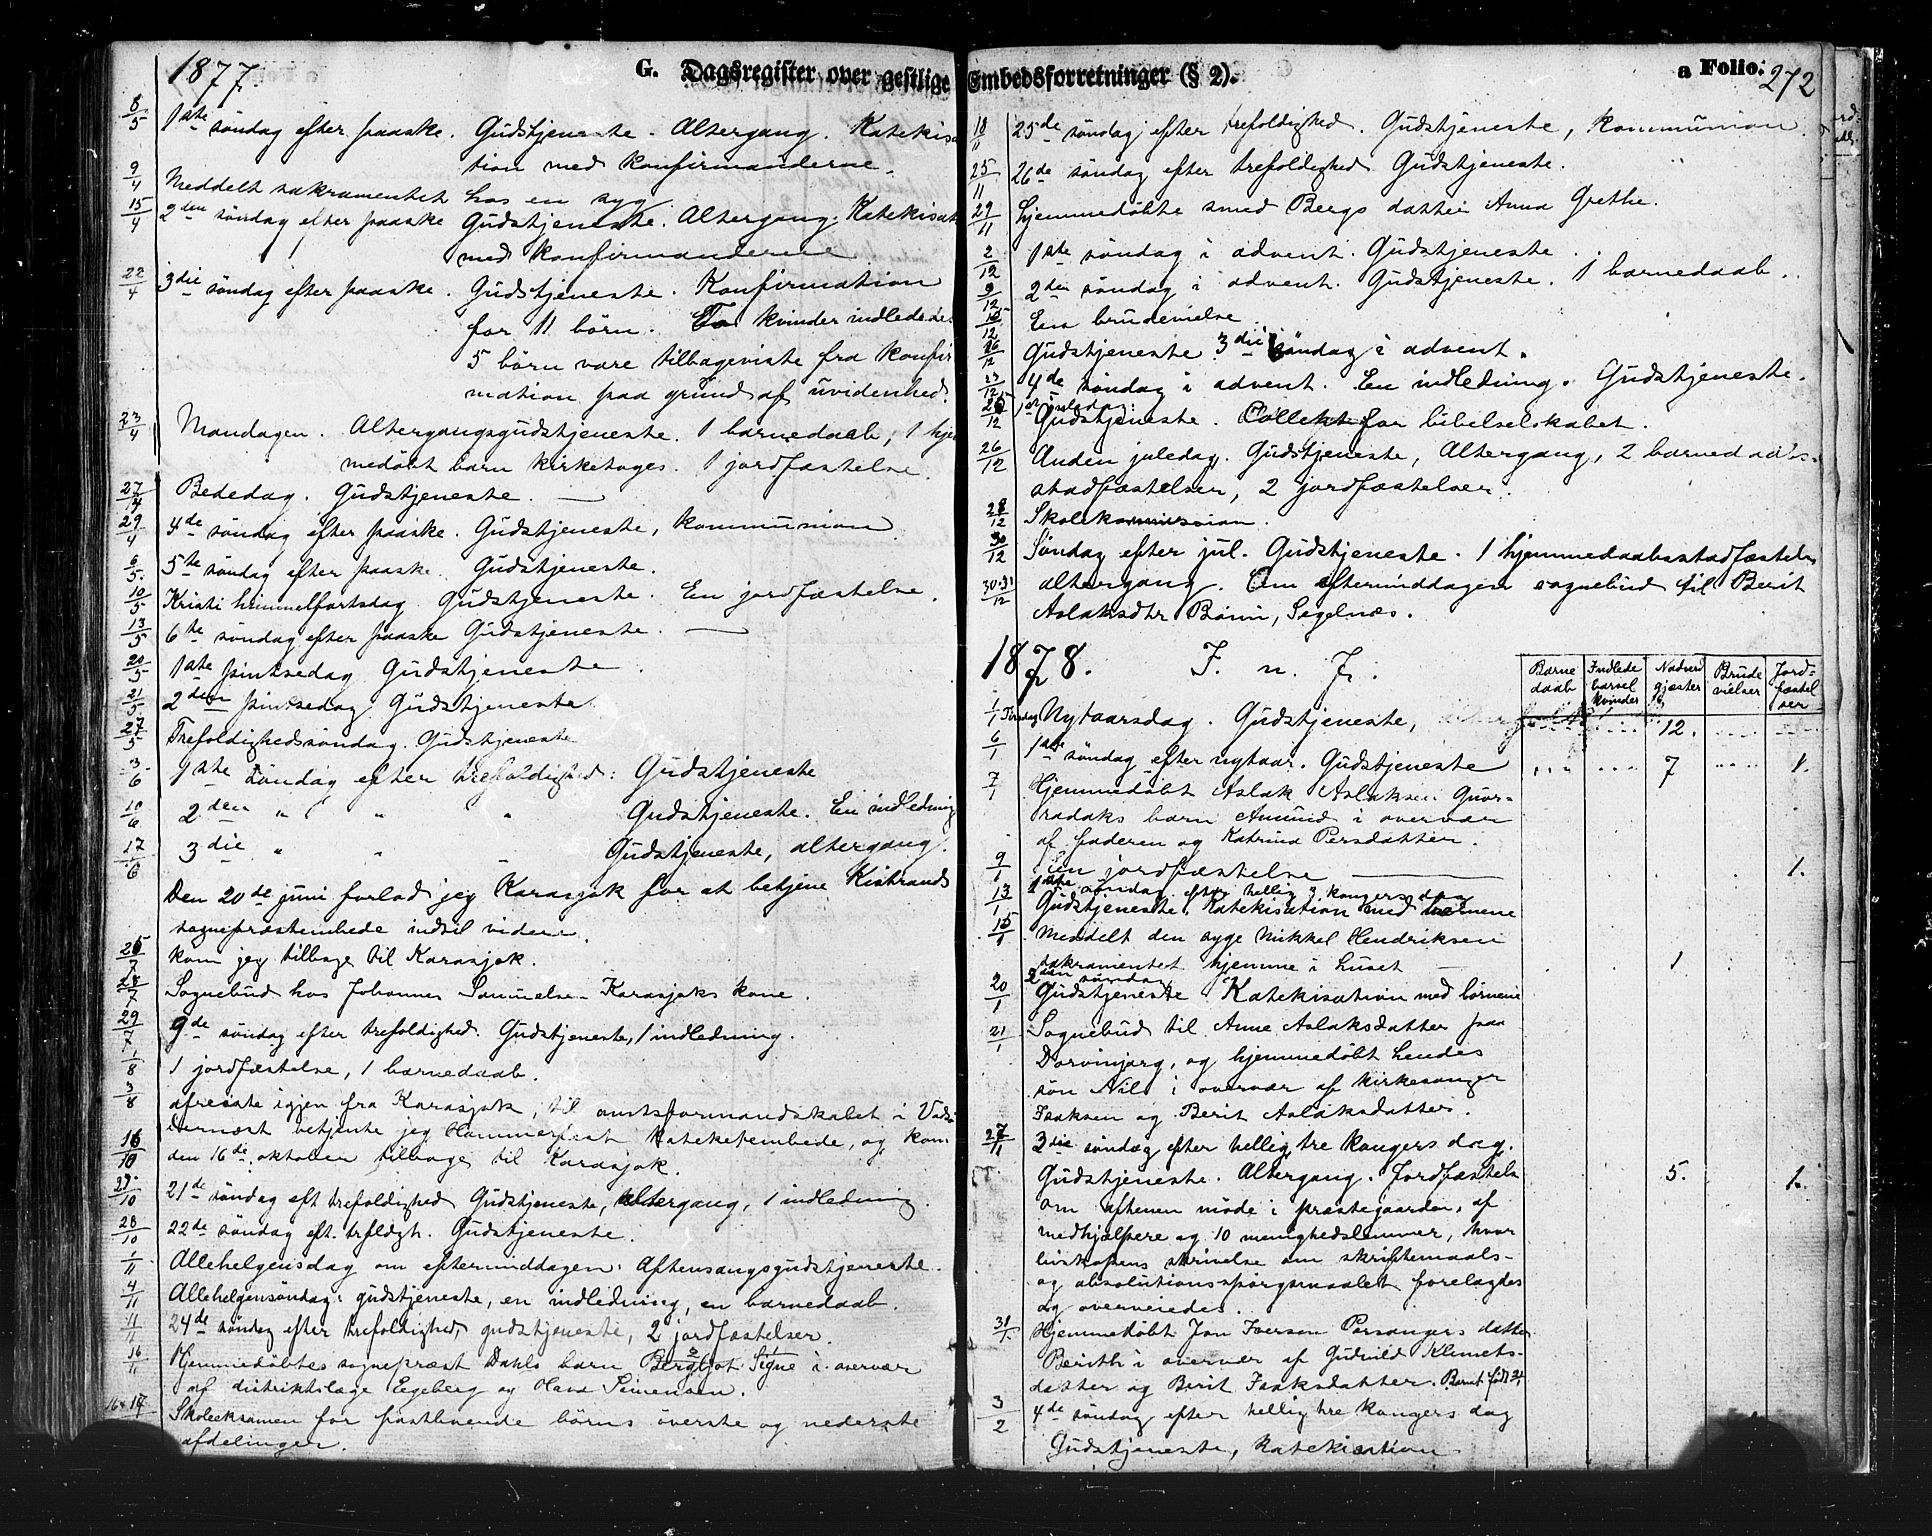 1877.
G. Dagsregister over gestlige
8/5 1ste søndag efter paaske. Gudstjeneste. Altergang. Katekisa
tion med konfirmanderne.
9/4 Meddelt sakramentet hos en syg.
15/4 2den søndag efter paaske Gudstjeneste. Altergang. Katekisat
med konfirmanderne
22/4 3die søndag efter paaske. Gudstjeneste. Konfirmation
for 11 børn. To kvinder indledede.
5 børn vare tilbageviste fra konfir
mation paa grund af uvidenhed.
23/4 Mandagen. Altergangsgudstjeneste. 1 barnedaab, 1 hjem
medøbt barn kirketoges. 1 jordfæstelse.
27/4 Bededag. Gudstjeneste. —
29/4 4de søndag efter paaske. Gudstjeneste, kommunion.
6/5. 5te søndag efter paaske. Gudstjeneste.
10/5 Kristi himmelfartsdag. Gudstjeneste. En jordfæstelse.
13/5 6te søndag efter paaske Gudstjeneste. —
20/5 1ste pintsedag Gudstjeneste.
21/5 2den pintsedag Gudstjeneste.
27/5 Trefoldighedssøndag. Gudstjeneste
3/6 1ste søndag efter trefoldighed: Gudstjeneste
10/6 2den " " " Gudstjeneste. En indledning
17/6 3die " " " Gudstjeneste, altergang.
Den 20de juni forlod jeg Karasjok for at betjene Kistrands
sognepræstembede indtil videre.
25/7 kom jeg tilbage til Karasjok.
28/7 Sognebud hos Johannes Samuelsen Karasjoks kone.
29/7 9de søndag efter trefoldighed. Gudstjeneste, 1 indledning.
1/8 1 jordfæstelse, 1 barnedaab.
3/8 afreiste igjen fra Karasjok, til amtsformandskabet i Vadsø
dernæst betjente jeg Hammerfest kateketembede, og kom
16/10 den 16de oktober tilbage til Karasjok.
21/10 21de søndag eft trefoldighed Gudstjeneste, altergang, 1 indledning
28/10 22de søndag eft. trfldgh. Gudstjeneste.
1/11 Allehelgensdag om eftermiddagen: Aftensangsgudstjeneste.
4/11 Allehelgensøndag: gudstjeneste, en indledning, en barnedaab.
11/11 24de søndag efter trefoldighed, gudstjeneste, 2 jordfæstelser.
16/11 Hjemmedøbtes sognepræst Dahls barn Bergljot Signe i overvær
af distriktslæge Egeberg og Hans Simensen.
16+17 Skoleeksamen for fastboende børns øverste og nederste
afdelinger.
Embedsforretninger (§ 2).
a Folio. 272
18/11 25de søndag efter trefoldighed. Gudstjeneste, kommunion.
25/11 26de søndag efter trefoldighed Gudstjeneste.
29/11 hjemmedøbte smed Bergs datter Anna Grethe.
2/12 1ste søndag i advent. Gudstjeneste.
9/12 2den søndag i advent. Gudstjeneste. 1 barnedaab.
15/12 En brudevielse
16/12 Gudstjeneste 3die søndag i advent.
23/12 4de søndag i advent. En indledning. Gudstjeneste.
25/12 1ste juledag. Gudstjeneste. Collekt for bibelselskabet.
26/12 Anden juledag. Gudstjeneste, Altergang, 2 barnedaabs-
stadfæstelser, 2 jordfæstelser.
28/12 Skolekommission.
30/12 Søndag efter jul. Gudstjeneste. 1 hjemmedaabsstadfæstelse
30.31/12 altergang. Om eftermiddagen sognebud til Berit
Aslaksdtr Bønn, Segelnæs.
1878. I. n. J.
Barne daab | Indlede barsel kvinder | Nadverd gjæster | Brude vielser | Jordfæstelser
1/1 Tirsdag Nytaarsdag. Gudstjeneste, 12.
6/1 1ste søndag efter nytaar. Gudstjeneste 7 1.
7/1 Hjemmedøbt Aslak Aslaksen Guor-
radaks barn Amund i overvær
af faderen og Katrina Persdatter.
9/1 En jordfæstelse — 1.
13/1 1ste søndag efter hellig 3 kongersdag
Gudstjeneste, Katekisation med børnene
15/1 Meddelt den syge Mikkel Hendriksen
sakramentet hjemme i huset — 1
20/1 2den søndag
Gudstjeneste Katekisation med børnene
21/1 Sognebud til Anne Aslaksdatter paa
Dorvinjarg, og hjemmedøbt hendes
søn Nils i overvær af kirkesanger
Isaksen og Berit Aslaksdatter.
27/1 3die søndag efter hellig tre kongers dag.
Gudstjeneste. Altergang. Jordfæstels 5. 1.
om aftenen møde i præstegaarden, af
medhjælpere og 10 menighedslemmer, hvor
biskopens skrivelse om skriftemaals-
og absolutionsspørgsmaalet forelagdes
og overveiedes.
31/1 Hjemmedøbt Jon Iversen Porsangers datter
Berith i overvær af Gudrild Klemets-
datter og Berit Isaksdatter. Barnet født 31/1
3/2 4de søndag efter hellig tre kongers dag
Gudstjeneste, katekisation